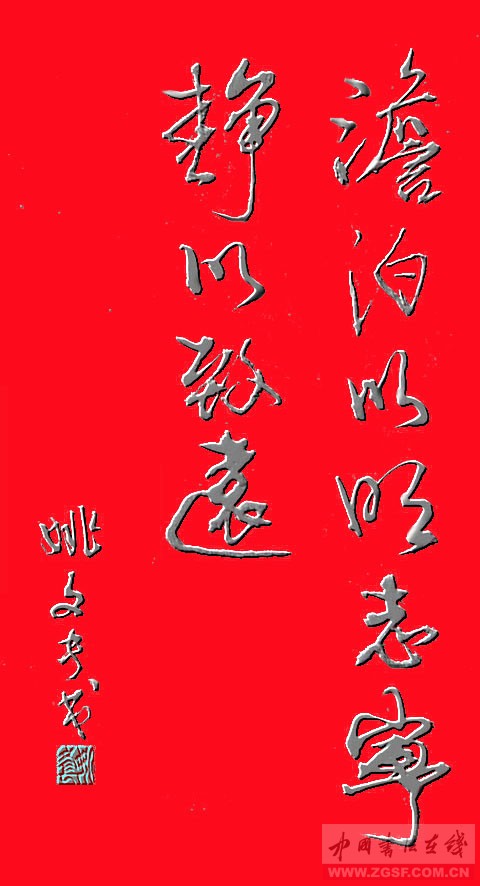 澹泊以明志寧
靜以致遠
姚文奇书
中國書法在线
WWW.ZGSF.COM.CN